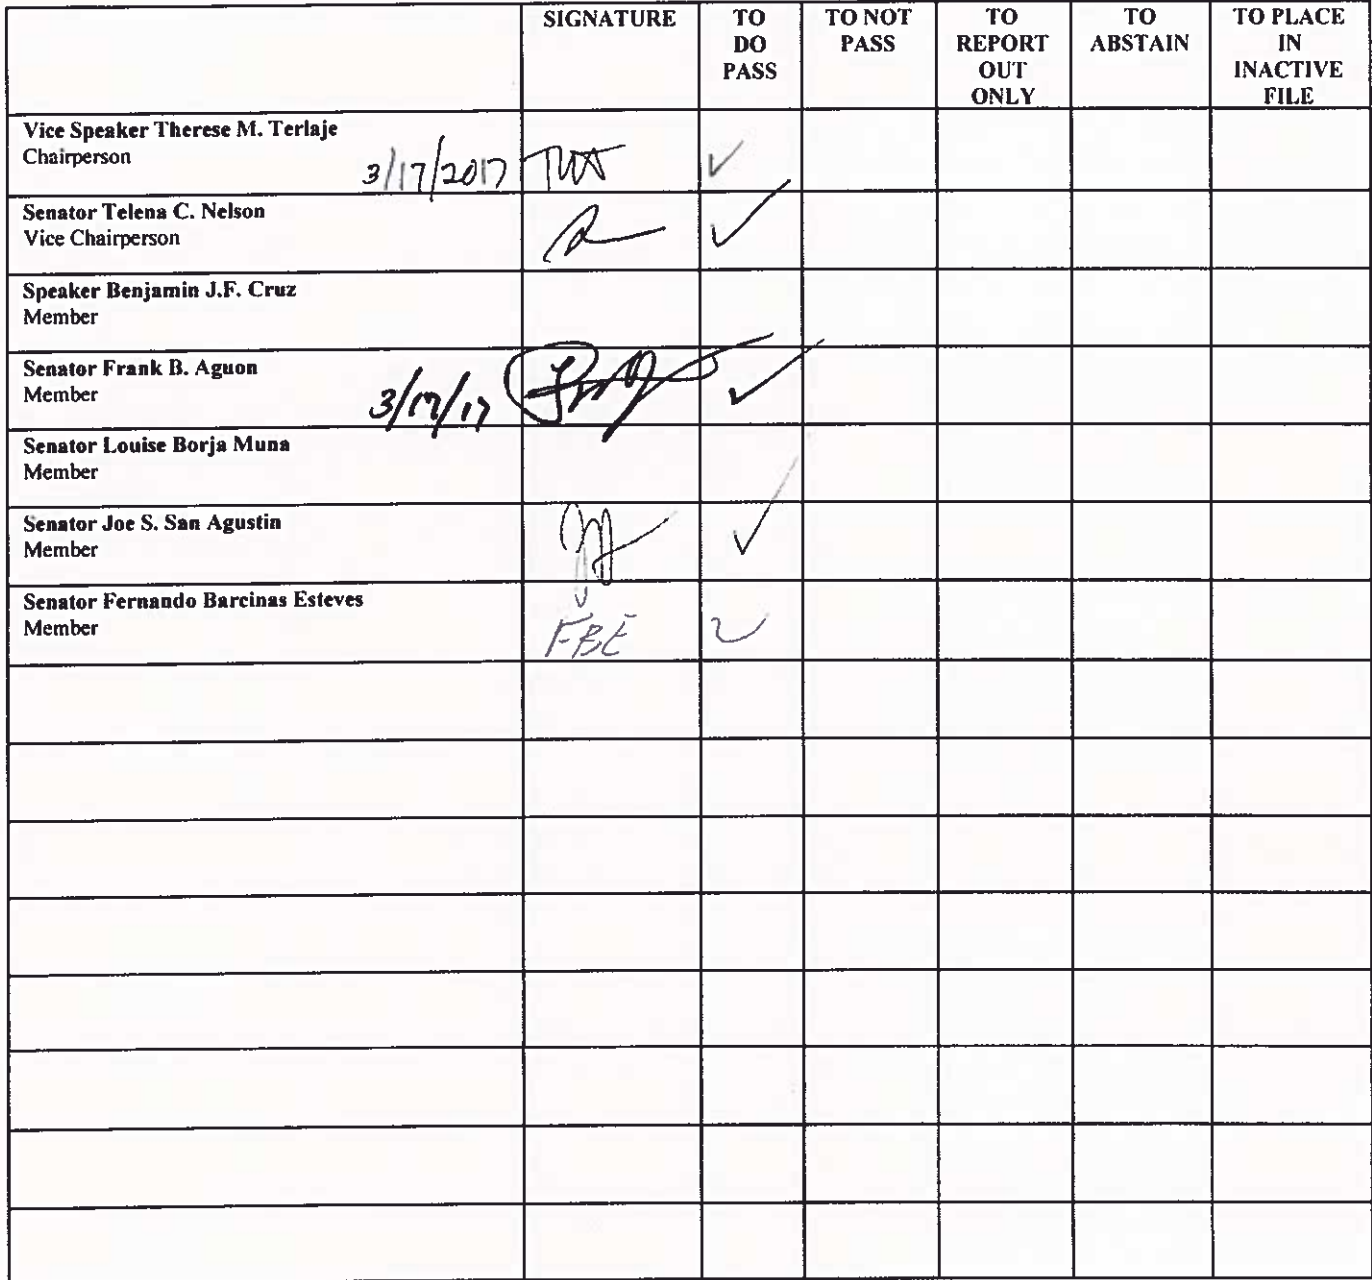 SIGNATURE
TO DO PASS
TO NOT PASS
TO REPORT OUT ONLY
TO ABSTAIN
TO PLACE IN INACTIVE FILE
Vice Speaker Therese M. Terlaje
Chairperson
3/17/2017
✓
Senator Telena C. Nelson
Vice Chairperson
✓
Speaker Benjamin J.F. Cruz
Member
Senator Frank B. Aguon
Member
3/17/17
✓
Senator Louise Borja Muna
Member
Senator Joe S. San Agustin
Member
✓
Senator Fernando Barcinas Esteves
Member
FBE
✓